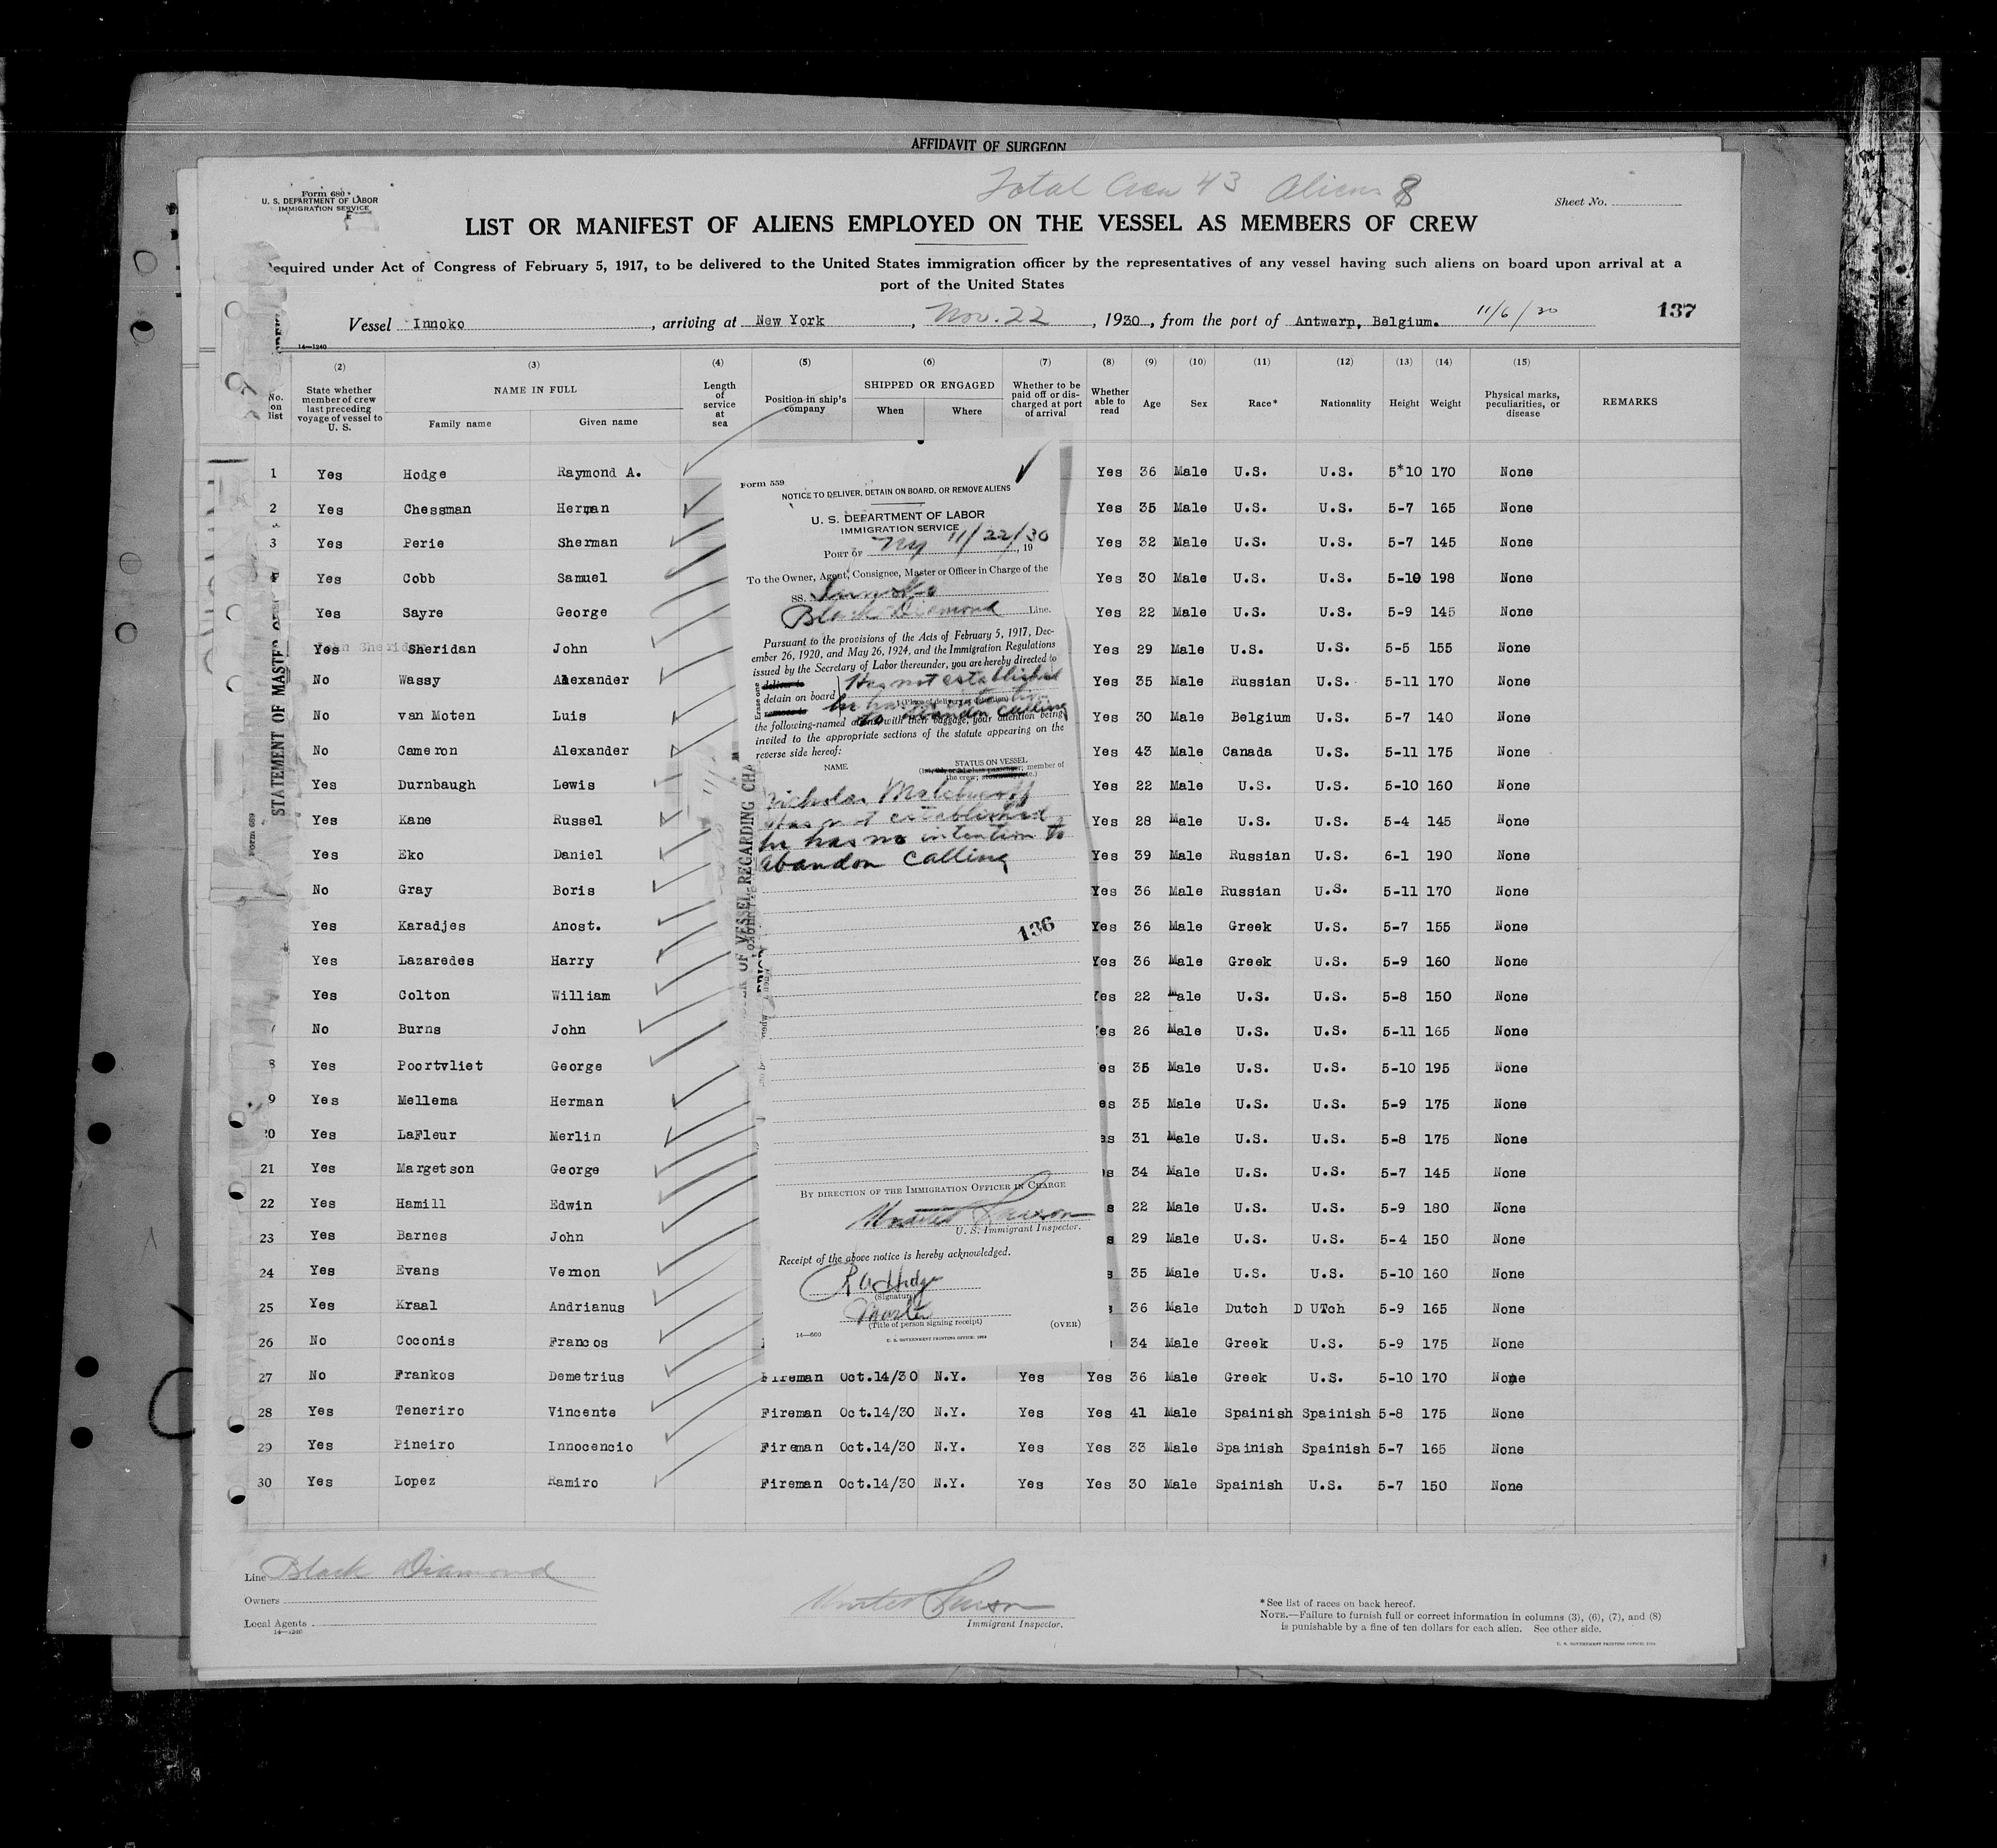 AFFIDAVIT OF SURGEON
Total Crew 43 Aliens 8
Form 680
U. S. DEPARTMENT OF LABOR
IMMIGRATION SERVICE
Sheet No.
LIST OR MANIFEST OF ALIENS EMPLOYED ON THE VESSEL AS MEMBERS OF CREW
equired under Act of Congress of February 5, 1917, to be delivered to the United States immigration officer by the representatives of any vessel having such aliens on board upon arrival at a
port of the United States
Vessel Innoko, arriving at New York, Nov. 22, 1930, from the port of Antwerp, Belgium. 11/6/30 137
14—1240
(2) (3) (4) (5) (6) (7) (8) (9) (10) (11) (12) (13) (14) (15)
No. on list
State whether member of crew last preceding voyage of vessel to U. S.
NAME IN FULL
Family name Given name
Length of service at sea
Position in ship's company
SHIPPED OR ENGAGED
When Where
Whether to be paid off or discharged at port of arrival
Whether able to read
Age Sex Race* Nationality Height Weight
Physical marks, peculiarities, or disease
REMARKS
1 Yes Hodge Raymond A. Yes 36 Male U.S. U.S. 5*10 170 None
2 Yes Chessman Herman Yes 35 Male U.S. U.S. 5-7 165 None
3 Yes Perie Sherman Yes 32 Male U.S. U.S. 5-7 145 None
4 Yes Cobb Samuel Yes 30 Male U.S. U.S. 5-10 198 None
Yes Sayre George Yes 22 Male U.S. U.S. 5-9 145 None
Yes Sheridan John Yes 29 Male U.S. U.S. 5-5 155 None
No Wassy Alexander Yes 35 Male Russian U.S. 5-11 170 None
No van Moten Luis Yes 30 Male Belgium U.S. 5-7 140 None
No Cameron Alexander Yes 43 Male Canada U.S. 5-11 175 None
Yes Durnbaugh Lewis Yes 22 Male U.S. U.S. 5-10 160 None
Yes Kane Russel Yes 28 Male U.S. U.S. 5-4 145 None
Yes Eko Daniel Yes 39 Male Russian U.S. 6-1 190 None
No Gray Boris Yes 36 Male Russian U.S. 5-11 170 None
Yes Karadjes Anost. Yes 36 Male Greek U.S. 5-7 155 None
Yes Lazaredes Harry Yes 36 Male Greek U.S. 5-9 160 None
Yes Colton William Yes 22 Male U.S. U.S. 5-8 150 None
No Burns John es 26 Male U.S. U.S. 5-11 165 None
8 Yes Poortvliet George es 35 Male U.S. U.S. 5-10 195 None
9 Yes Mellema Herman es 35 Male U.S. U.S. 5-9 175 None
20 Yes LaFleur Merlin es 31 Male U.S. U.S. 5-8 175 None
21 Yes Margetson George s 34 Male U.S. U.S. 5-7 145 None
22 Yes Hamill Edwin s 22 Male U.S. U.S. 5-9 180 None
23 Yes Barnes John s 29 Male U.S. U.S. 5-4 150 None
24 Yes Evans Vernon s 35 Male U.S. U.S. 5-10 160 None
25 Yes Kraal Andrianus 36 Male Dutch D UTch 5-9 165 None
26 No Coconis Francos 34 Male Greek U.S. 5-9 175 None
27 No Frankos Demetrius Fireman Oct.14/30 N.Y. Yes Yes 36 Male Greek U.S. 5-10 170 None
28 Yes Teneriro Vincente Fireman Oct.14/30 N.Y. Yes Yes 41 Male Spainish Spainish 5-8 175 None
29 Yes Pineiro Innocencio Fireman Oct.14/30 N.Y. Yes Yes 33 Male Spainish Spainish 5-7 165 None
30 Yes Lopez Ramiro Fireman Oct.14/30 N.Y. Yes Yes 30 Male Spainish U.S. 5-7 150 None
Form 559
NOTICE TO DELIVER, DETAIN ON BOARD, OR REMOVE ALIENS
U. S. DEPARTMENT OF LABOR
IMMIGRATION SERVICE
PORT OF NY 11/22/30, 19
To the Owner, Agent, Consignee, Master or Officer in Charge of the
SS. Innoko
Black Diamond Line.
Pursuant to the provisions of the Acts of February 5, 1917, Dec-
ember 26, 1920, and May 26, 1924, and the Immigration Regulations
issued by the Secretary of Labor thereunder, you are hereby directed to
Erase one
deliver to
detain on board
remove to
Has not established
he has no intention
to abandon calling
the following-named aliens, with their baggage, your attention being
invited to the appropriate sections of the statute appearing on the
reverse side hereof:
NAME STATUS ON VESSEL
member of
the crew;
Nicholas
Has not established
he has no intention to
abandon calling
136
BY DIRECTION OF THE IMMIGRATION OFFICER IN CHARGE
U. S. Immigrant Inspector.
Receipt of the above notice is hereby acknowledged.
R A Hodge
(Signature)
Master
(Title of person signing receipt)
14—660 (OVER)
U. S. GOVERNMENT PRINTING OFFICE: 1924
STATEMENT OF MASTER
OF VESSEL REGARDING CHA
Form 689
Line Black Diamond
Owners
Local Agents
14—1240
Immigrant Inspector.
*See list of races on back hereof.
NOTE.—Failure to furnish full or correct information in columns (3), (6), (7), and (8)
is punishable by a fine of ten dollars for each alien. See other side.
U. S. GOVERNMENT PRINTING OFFICE